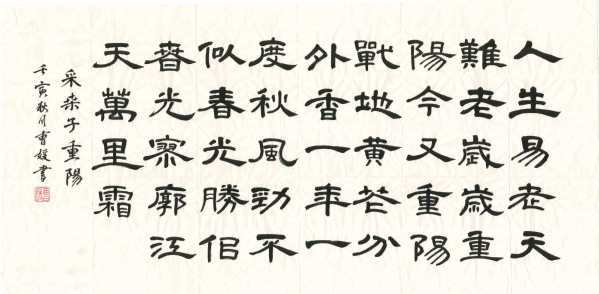 人生易老天
難老歲歲重
陽今又重陽
戰地黄花分
外香一年一
度秋風勁不
似春光勝佀
春光寥廓江
天萬里霜
采桑子重陽
壬寅秋月曹媛書